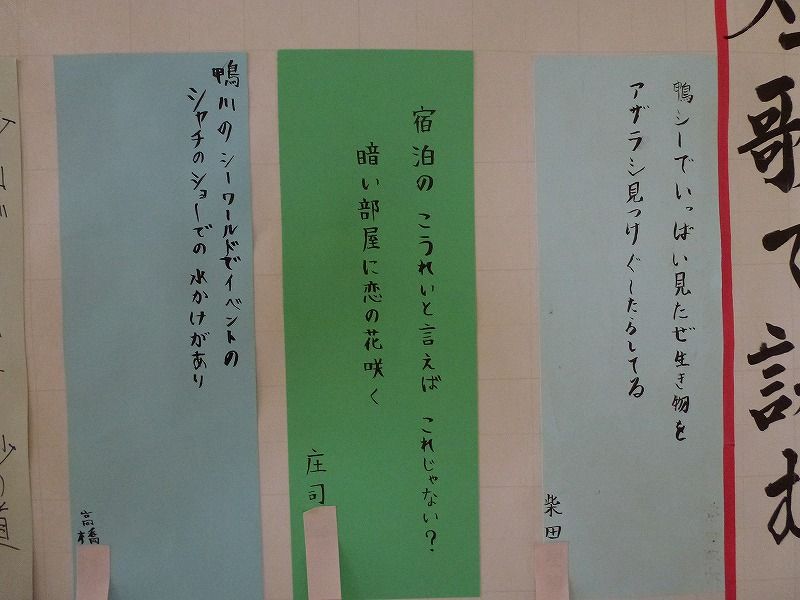 短歌で詠む
鴨シーでいっぱい見たぜ生き物を
アザラシ見つけぐーたらしてる
柴田
宿泊の こうれいと言えば これじゃない?
暗い部屋に恋の花咲く
庄司
鴨川の シーワールドでイベントの
シャチのショーでの 水かけがあり
高橋